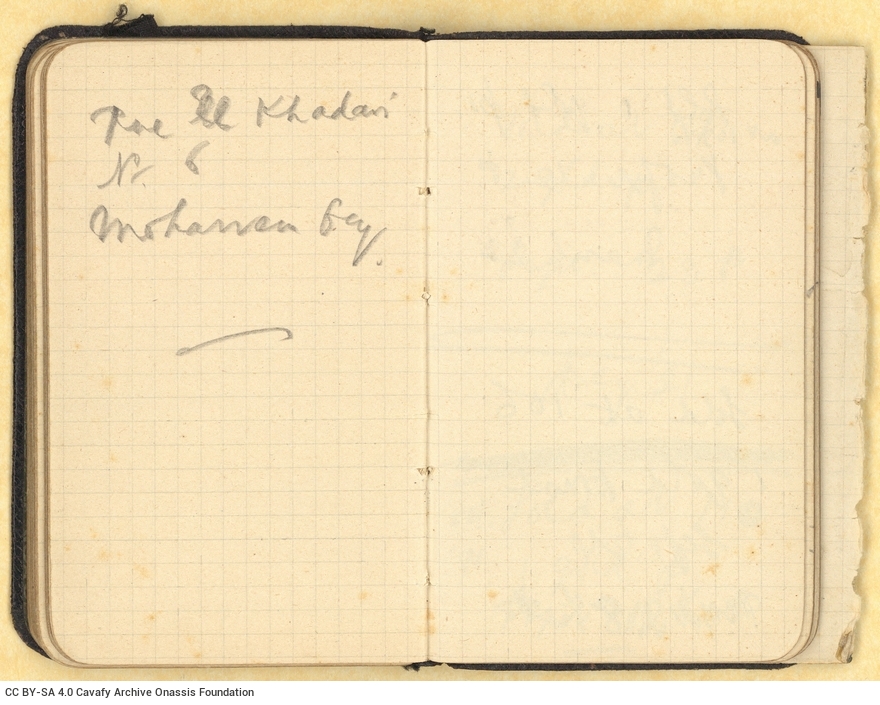 Rue El Khadavi
Nr. 6
Moharrem bey.
CC BY-SA 4.0 Cavafy Archive Onassis Foundation